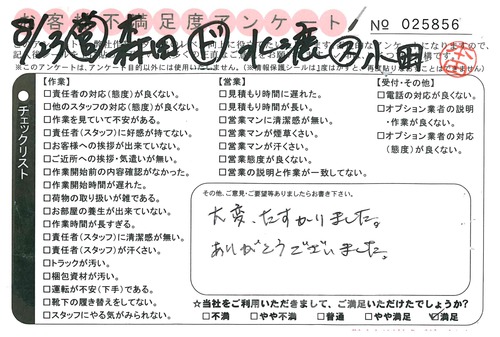 お客様不満足度アンケート
№ 025856
8/23 営 森田 北濱 小田
チェックリスト
【作業】
□責任者の対応(態度)が良くない。
□他のスタッフの対応(態度)が良くない。
□作業を見ていて不安がある。
□責任者(スタッフ)に好感が持てない。
□お客様への挨拶が出来ていない。
□ご近所への挨拶・気遣いが無い。
□作業開始前の内容確認がなかった。
□作業開始時間が遅れた。
□荷物の取り扱いが雑である。
□お部屋の養生が出来ていない。
□作業時間が長すぎる。
□責任者(スタッフ)に清潔感が無い。
□責任者(スタッフ)が汗くさい。
□トラックが汚い。
□梱包資材が汚い。
□運転が安い(下手)である。
□靴下の履き替えをしてない。
□スタッフにやる気がみられない。
【営業】
□見積もり時間に遅れた。
□見積もり時間が長い。
□営業マンに清潔感が無い。
□営業マンが煙草くさい。
□営業マンが汗くさい。
□営業態度が良くない。
□営業の説明と作業が一致してない。
【受付・その他】
□電話の対応が良くない。
□オプション業者の説明
・作業が良くない。
□オプション業者の対応
(態度)が良くない。
その他、ご意見・ご要望等ありましたらお書き下さい。
大変、たすかりました。
ありがとうございました。
☆当社をご利用いただきまして、ご満足いただけたでしょうか?
□不満 □やや不満 □普通 □やや満足 ☑満足